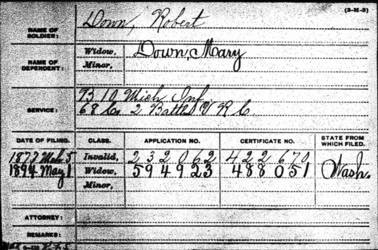 (3-M-3)
NAME OF SOLDIER: Down, Robert
NAME OF DEPENDENT: Widow, Down, Mary
Minor,
SERVICE: B 10 Mich Inf.
68 Co. 2 Batt. V R C.
DATE OF FILING. CLASS. APPLICATION NO. CERTIFICATE NO. STATE FROM WHICH FILED.
1877 Invalid, 232062 422670
1894 May 1 Widow, 594923 488051 Wash.
Minor,
ATTORNEY:
REMARKS: